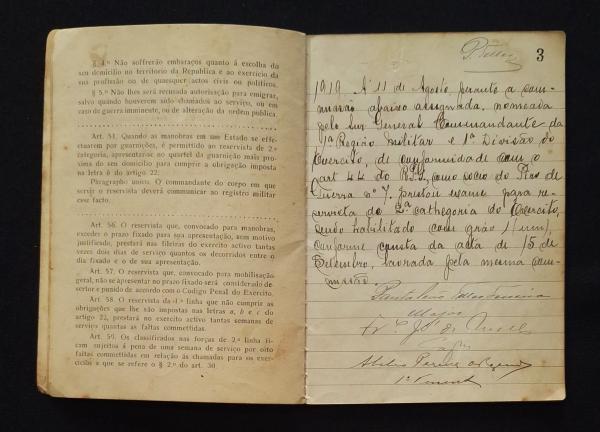 § 4.º Não soffrerão embaraços quanto á escolha do
seu domicilio no territorio da Republica e ao exercicio da
sua profissão ou de quaesquer actos civis ou politicos.
§ 5.º Não lhes será recusada autorisação para emigrar,
salvo quando houverem sido chamados ao serviço, ou em
caso de guerra imminente, ou de alteração da ordem publica.
Art. 51. Quando as manobras em um Estado se effe-
ctuarem por guarnições, é permittido ao reservista de 2.ª
categoria, apresentar-se no quartel da guarnição mais proxi-
ma do seu domicilio para cumprir a obrigação imposta
na letra b do artigo 22.
Paragrapho unico. O commandante do corpo em que
servir o reservista deverá communicar ao registro militar
esse facto.
Art. 56. O reservista que, convocado para manobras,
exceder o prazo fixado para sua apresentação, sem motivo
justificado, prestará nas fileiras do exercito activo tantas
vezes dois dias de serviço quantos os decorridos entre o
dia fixado e o de sua apresentação.
Art. 57. O reservista que, convocado para mobilisação
geral, não se apresentar no prazo fixado será considerado de
sertor e punido de accordo com o Codigo Penal do Exercito.
Art. 58. O reservista da 1ª linha que não cumprir as
obrigações que lhe são impostas nas letras a, b e c do
artigo 22, prestará no exercito activo tantas semanas de
serviço quantas as faltas commettidas.
Art. 59. Os classificados nas forças de 2.ª linha fi-
cam sujeitos á pena de uma semana de serviço por oito
faltas commettidas em relação ás chamadas para os exer-
cicios a que se refere o § 2.º do art. 30
3
1919. A 11 de Agosto, perante a com-
missão abaixo assignada, nomeada
pelo Snr General Commandante da
1ª Região Militar e 1ª Divisão do
Exercito, de conformidade com o
art 44 do R.S.G, como socio do Tiro de
Guerra nº 7, prestou exame para re-
servista de 2ª cathegoria do Exercito,
sendo habilitado com gráo 1 (um),
conforme consta da acta de 15 de
Setembro, lavrada pela mesma com-
missão.
Pantaleão Telles Ferreira
Major
Cap
Pereira
1º Tenent